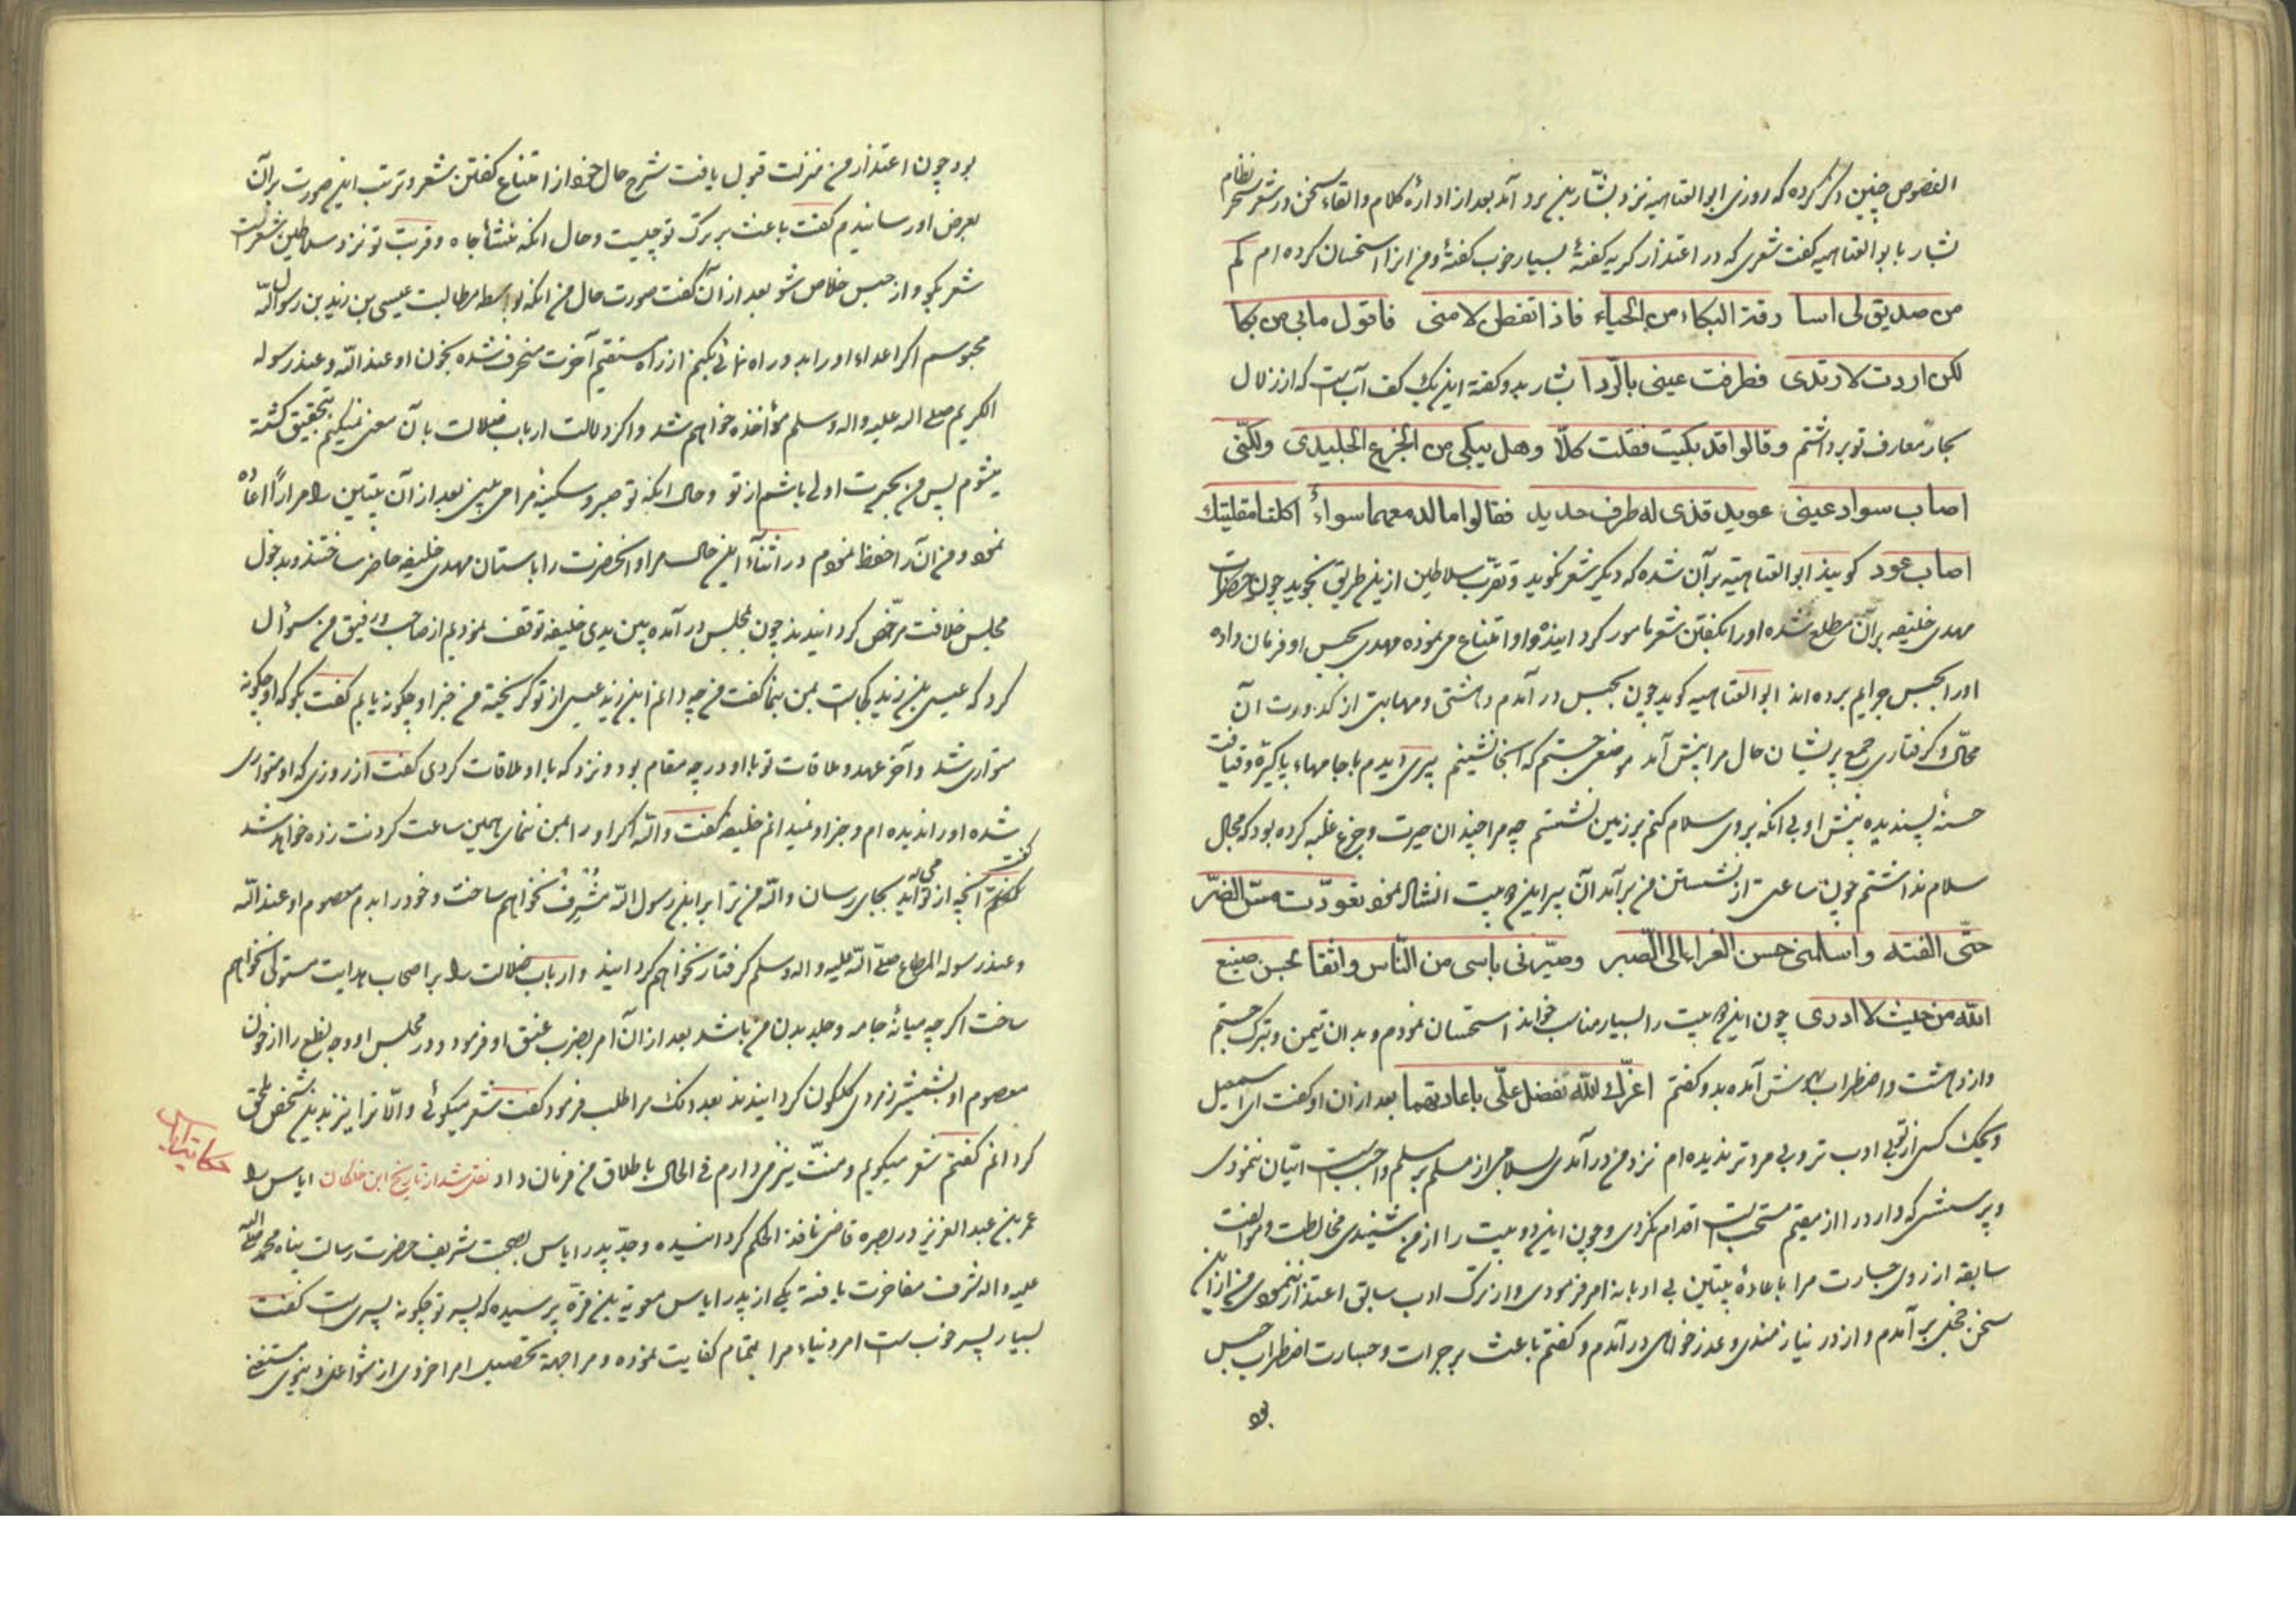 الغصوص چنین ذکر کرده که روزی ابو العتاهیه نزد بشّار بن برد آمد بعد از اداره کلام و القاء سخن در شعر سحر نظام
بشار با بو العتاهیه گفت شعری که در اعتذار گریه گفتهٔ بسیار خوب گفتهٔ و من انرا استحسان کرده ام کم
من صدیق لی اسا رقة البکاء من الحیاء فاذا تفطن لامنی فاقول ما بی من بکا
لکن اردت لارتدی فطرفت عینی بالردا بشار بدو گفته این یک کف آب ست که از زلال
بحار معارف تو برداشتم و قالوا قد بکیت فقلت کلّا وهل یبکی من الجزع الجلیدی ولکنّی
اصاب سواد عینی عوید قذی له طرف حدید فقالوا ما لدمعهما سواءٌ اکلتا مقلتیک
اصاب عود گویند ابو العتاهیّه برآن شده که دیگر شعر نگوید و تقرّب سلاطین ازین طریق نجوید چون حضرات
مهدی خلیفه برآن مطلع شده او را بگفتن شعر مامور گردانیده و او امتناع می نموده مهدی بحبس او فرمان داده
او را بحبس جرایم برده اند ابو العتاهیه گوید چون بحبس در آمدم دهشتی و مهابتی از کدورت آن
محلّ و گرفتاری جمع پریشان حال مرا پیش آمد موضعی جستم که آنجا نشینم پیری دیدم با جامهاء پاکیزه و قیافت
حسنهٔ پسندیده پیش او بی انکه بروی سلام کنم بر زمین نشستم چه مرا چندان حیرت و جزع غلبه کرده بود که مجال
سلام نداشتم چون ساعتی از نشستن من برآمد آن پیر این دو بیت انشاد نمود تعوّدت مسّ الضرّ
حتّی الفته واسلمنی حسن العزاء الی الصبر وصیّرنی یاسی من النّاس واثقا بحسن صنیع
اللّه من حیث لا ادری چون این دو بیت را بسیار مناسب خواند استحسان نمودم و بدان تیمن و تبرک جستم
و از دهشت و اضطراب بهوش آمده بدو گفتم اعزّک اللّه تفضل علّی باعادتهما بعد از ان او گفت ای اسمعیل
ویحک کسی از تو بی ادب تر و بی مروتر ندیده ام نزد من در آمدی سلامی از مسلم بر مسلم واجبست اتیان ننمودی
و پرسشی که وارد را از مقیم مستحبست اقدام نکردی و چون این دو بیت را از من شنیدی مخالطت و موالفت
سابقه از روی جسارت مرا باعادهٔ بیتین بی ادبانه امر فرمودی و از ترک ادب سابق اعتذار ننمودی من از ان
سخن خجل برآمدم و از در نیازمندی و عذر خواهی در آمدم و گفتم باعث بر جرات و جسارت اضطراب حبس
بود
بود چون اعتذار من منزلت قبول یافت شرح حال خود از امتناع گفتن شعر و ترتب این صورت برآن
بعرض او رسانیدم گفت باعث بر ترک تو چیست و حال انکه منشأ جاه و قربت تو نزد سلاطین شعرست
شعر بگو و از حبس خلاص شو بعد از آن گفت صورت حال من انکه بواسطه مطالبت عیسی بن زید بن رسول اللّه
محبوسم اگر اعداء او را بدو راه نمائی بکنم از راه مستقیم آخرت منحرف شده بخون او عند اللّه و عند رسوله
الکریم صلی اله علیه واله وسلم مؤاخذه خواهم شد و اگر دلالت ارباب ضلالت بآن معنی نمیکنم بتحقیق کشته
میشوم پس من بحیرت اولی باشم از تو و حال انکه تو صبر و سکینه مرا می بینی بعد از آن بیتین را مراراً اعاده
نمود و من آنرا حفظ نمودم در اثناء این حال مرا و انحضرت را باستان مهدی خلیفه حاضر ساختند و بدخول
مجلس خلافت مرخّص گردانیدند چون بمجلس در آمده بین یدی خلیفه توقف نمودیم از صاحب و رفیق من سوال
کرد که عیسی بن زید کجاست بمن بنما گفت من چه دانم این زید عیسی از تو گریخته من خبر او چگونه یابم گفت بگو که او چگونه
متواری شد و آخر عهد و ملاقات تو با او در چه مقام بود و نزد که با او ملاقات کردی گفت از روزی که او متواری
شده او را ندیده ام و خبر او نمیدانم خلیفه گفت واللّه اگر او را بمن ننمای همین ساعت گردنت زده خواهد شد
گفت انچه از تو می آید بجای رسان واللّه من ترا بر ابن رسول اللّه مشرف نخواهم ساخت و خود را بدم معصوم او عند اللّه
و عند رسوله المطاع صلّی اللّه علیه واله وسلم گرفتار نخواهم گردانید و ارباب ضلالت را بر اصحاب هدایت مستولی نخواهم
ساخت اگر چه میانهٔ جامه و جلد بدن من باشد بعد از آن امر بضرب عنق او فرمود و در مجلس او وجه نطع را از خون
معصوم او بشمشیر زمردی گلگون گردانیدند بعد ذلک مرا طلب فرمود گفت شعر میگوئی و الّا ترا نیز بدین شخص ملحق
گردانم گفتم شعر میگویم و منّت نیز می دارم فی الحال باطلاق من فرمان داد نقل شد از تاریخ ابن خلکان ایاس را
حکایت ایاس
عمر بن عبد العزیز در بصره قاضی نافذ الحکم گردانیده و جدّ پدر ایاس بصحبت شریف حضرت رسالت پناه محمد صلی اللّه
علیه واله شرف مفاخرت یافته یکی از پدر ایاس معویة بن قرّة پرسیده که پسر تو چگونه پسریست گفت
بسیار پسر خوب ست امر دنیاء مرا بتمام کفایت نموده و مرا جهة تحصیل امر اخروی از شواغل دنیوی مستغنی